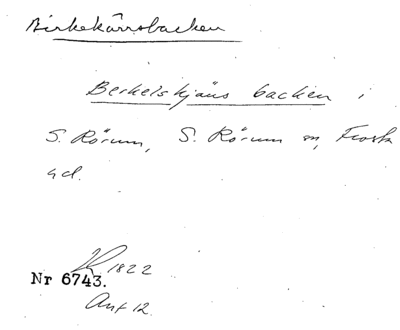 Birkekärrsbacken
Berkelskjäus backen i
S. Rörum, S. Rörum sn, Frosta
hd.
1822
Nr 6743.
Ant 12.